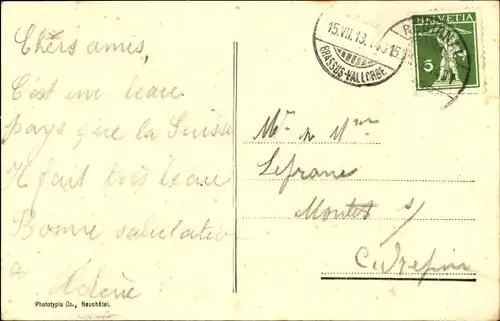 Chers amis,
C'est un beau
pays que la Suisse
Il fait très beau
Bonne salutation
à Hélène
Phototypie Co., Neuchâtel.
15.VII.13.
BRASSUS-VALLORBE
HELVETIA
5
Mr & Mme
Lefranc
Montet s/
Cudrefin